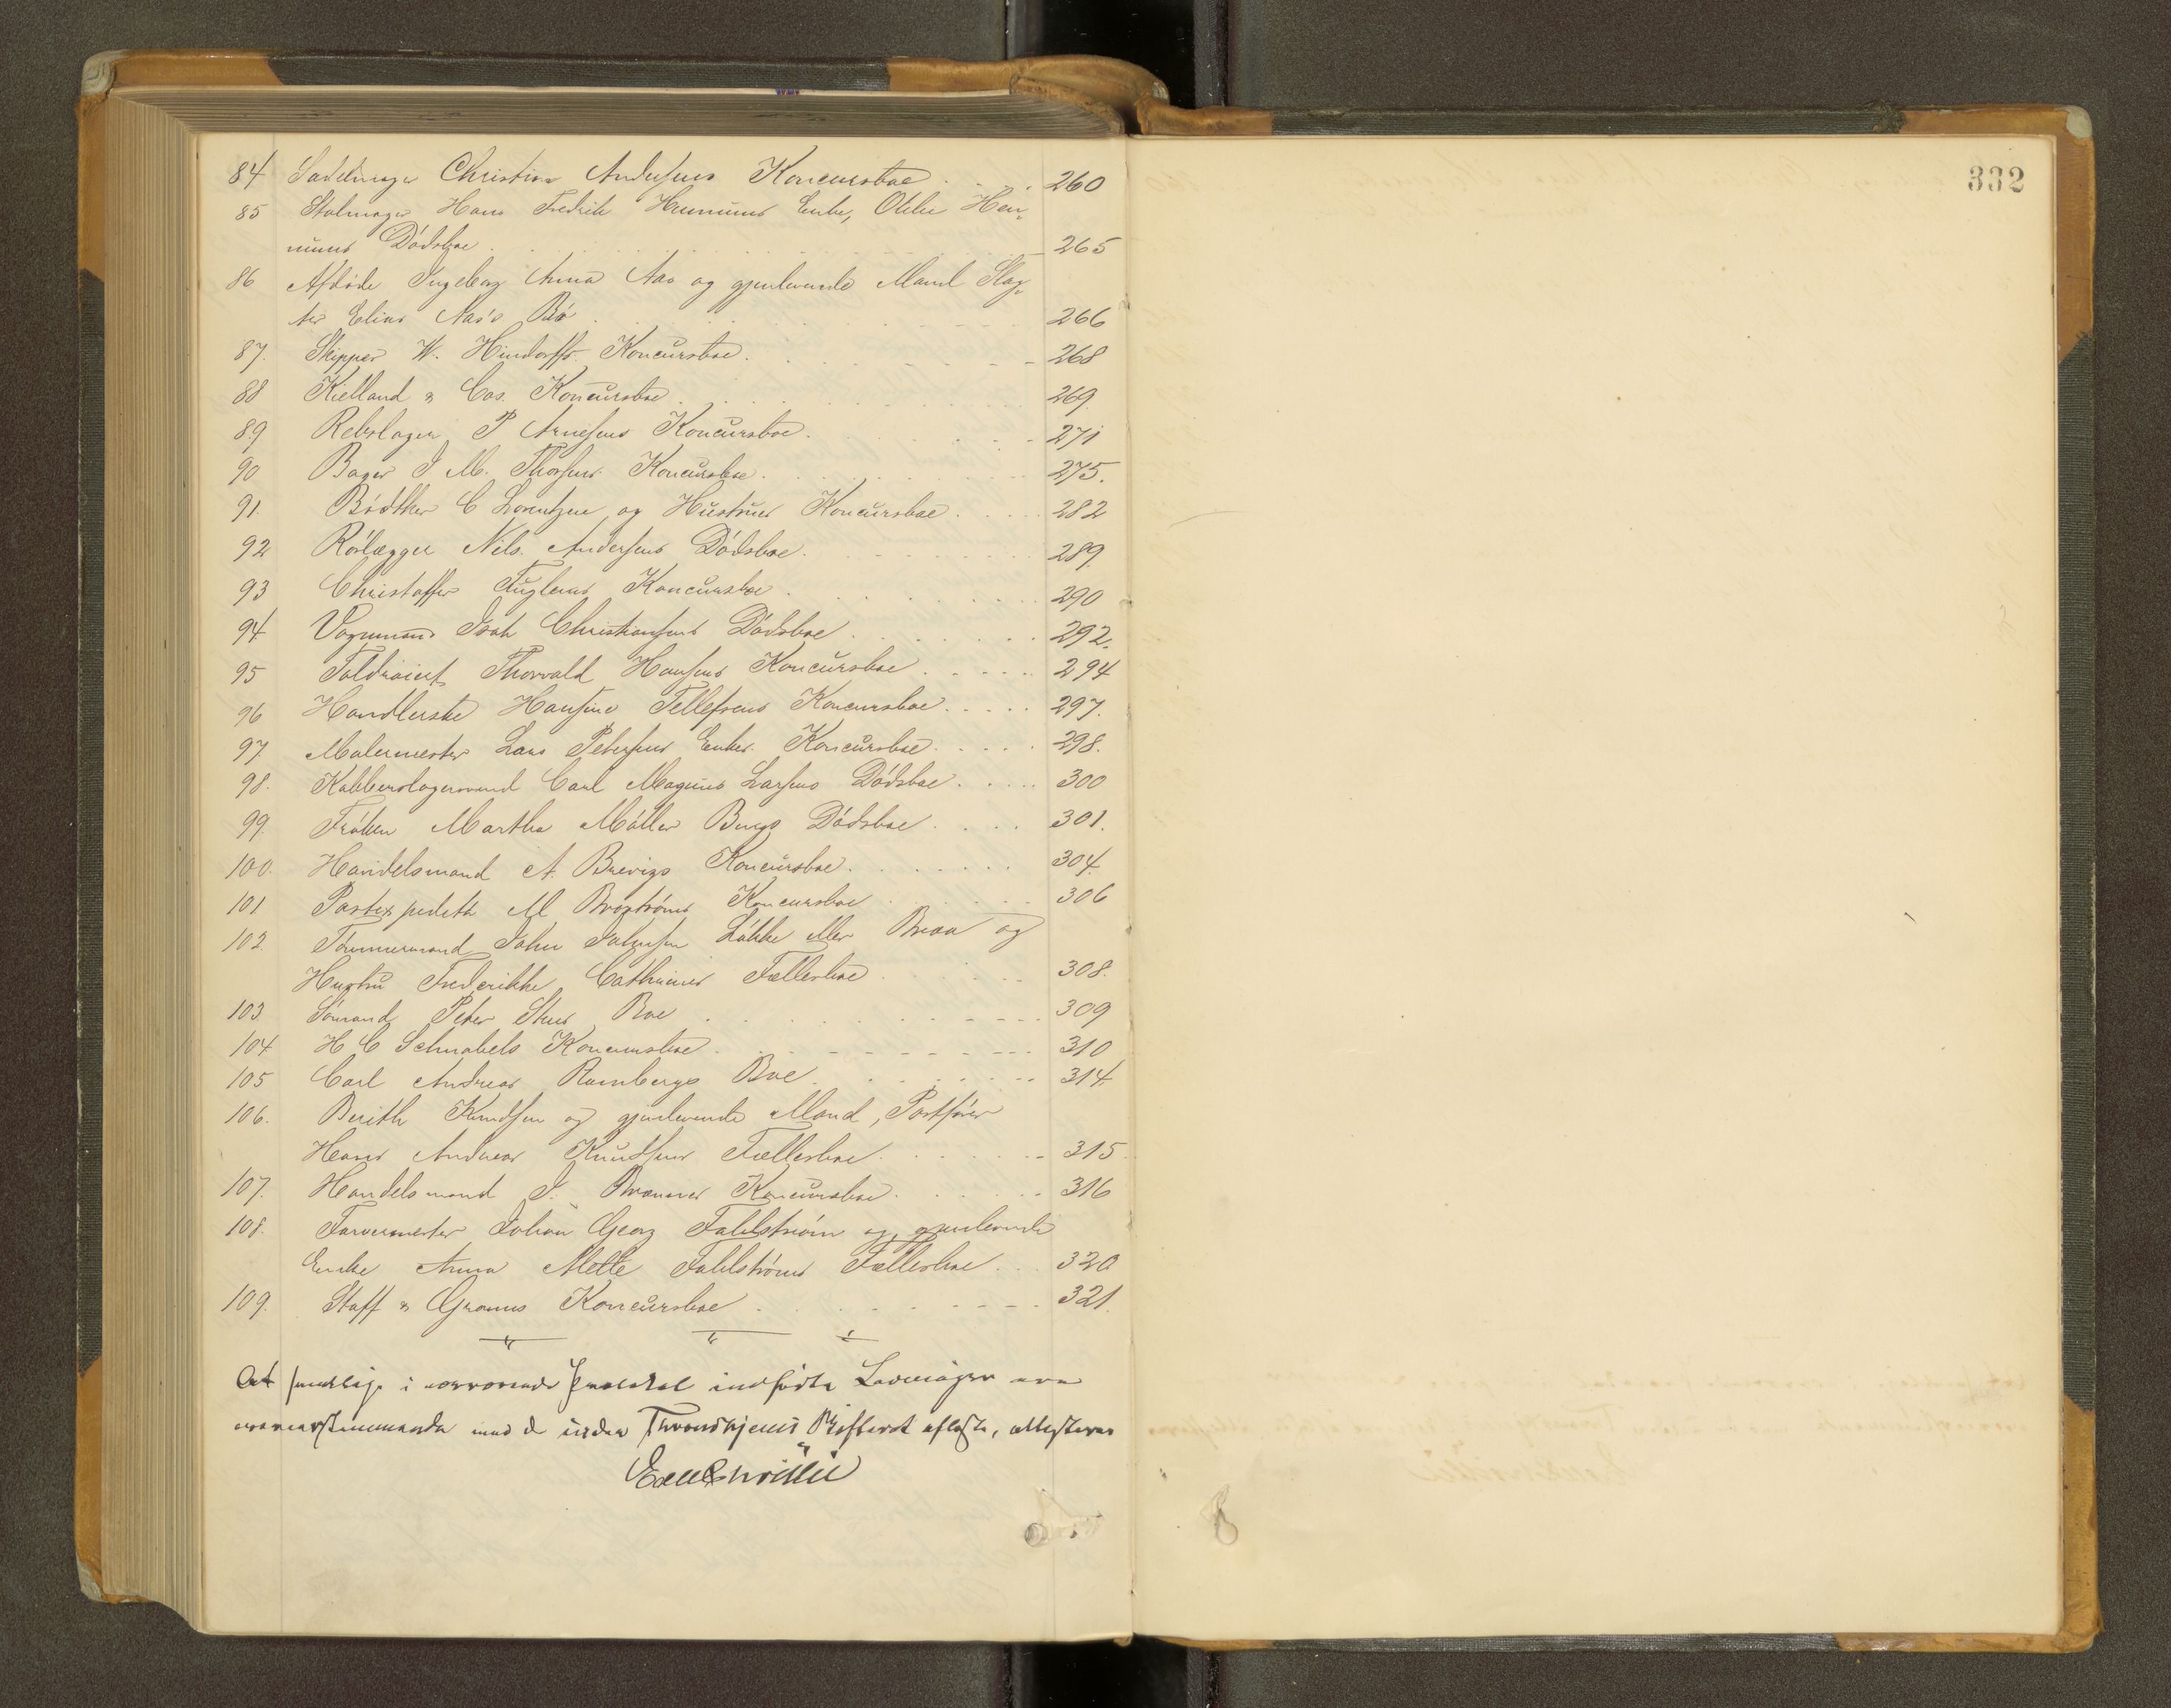 332
84 Sadelmager Christian Andersens Koncursboe 260
85 Stolmager Hans Fredrik Hemmers Enke, Olebe Hen„
nums Dödsboe 265
86 Afdöde Ingeborg Anna Aas og gjenlevende Mand Slag„
ter Elias Aas's Bo 266
87. Skipper W. Hindorffs Koncursboe. 268
88 Kielland & Cos. Koncursboe 269
89 Rebslager P Arnesens Koncursboe. 271
90 Bager I M. Thorsens Koncursboe. 275.
91. Bödtker C Lorentzen og Hustrues Koncursboe. 282
92 Rörlægger Nils Andersens Dödsboe. 289.
93 Christoffer Fuglems Koncursboe. 290
94 Vognmand Isak Christiansens Dödsboe 292.
95 Toldroiert Thorvald Hansens Koncursboe 294
96 Handlerske Hansine Tellefsens Koncursboe 297.
97 Malermester Lars Petersens Enkes Koncursboe. 298.
98. Kobberslagersvend Carl Magnus Larsens Dödsboe. 300
99. Fröken Martha Möller Bergs Dödsboe. 301.
100. Handelsmand A. Brevigs Koncursboe. 304.
101 Postexpeditör M Broströms Koncursboe 306
102. Tömmermand John Johnsen Løkke eller Braa og
Hustru Frederikke Cathrines Fællesboe 308.
103 Sömand Peter Boe 309
104 H C Schnabels Koncursboe. 310
105 Carl Andreas Rambergs Boe. 314.
106. Berith Knudsen og gjenlevende Mand, Postförer
Hans Andreas Knudsens Fællesboe. 315
107. Handelsmand J. Koncursboe. 316
108. Farvermester Johan Georg Fahlström og gjenlevende
Enke Anna Mette Fahlströms Fællesboe. 320
109. Staff & Grams Koncursboe. 321.
At samtlige i nærværende Protokol indførte Ladninger ere
overensstemmende med de under Throndhjems Skifteret aflagte, attesteres